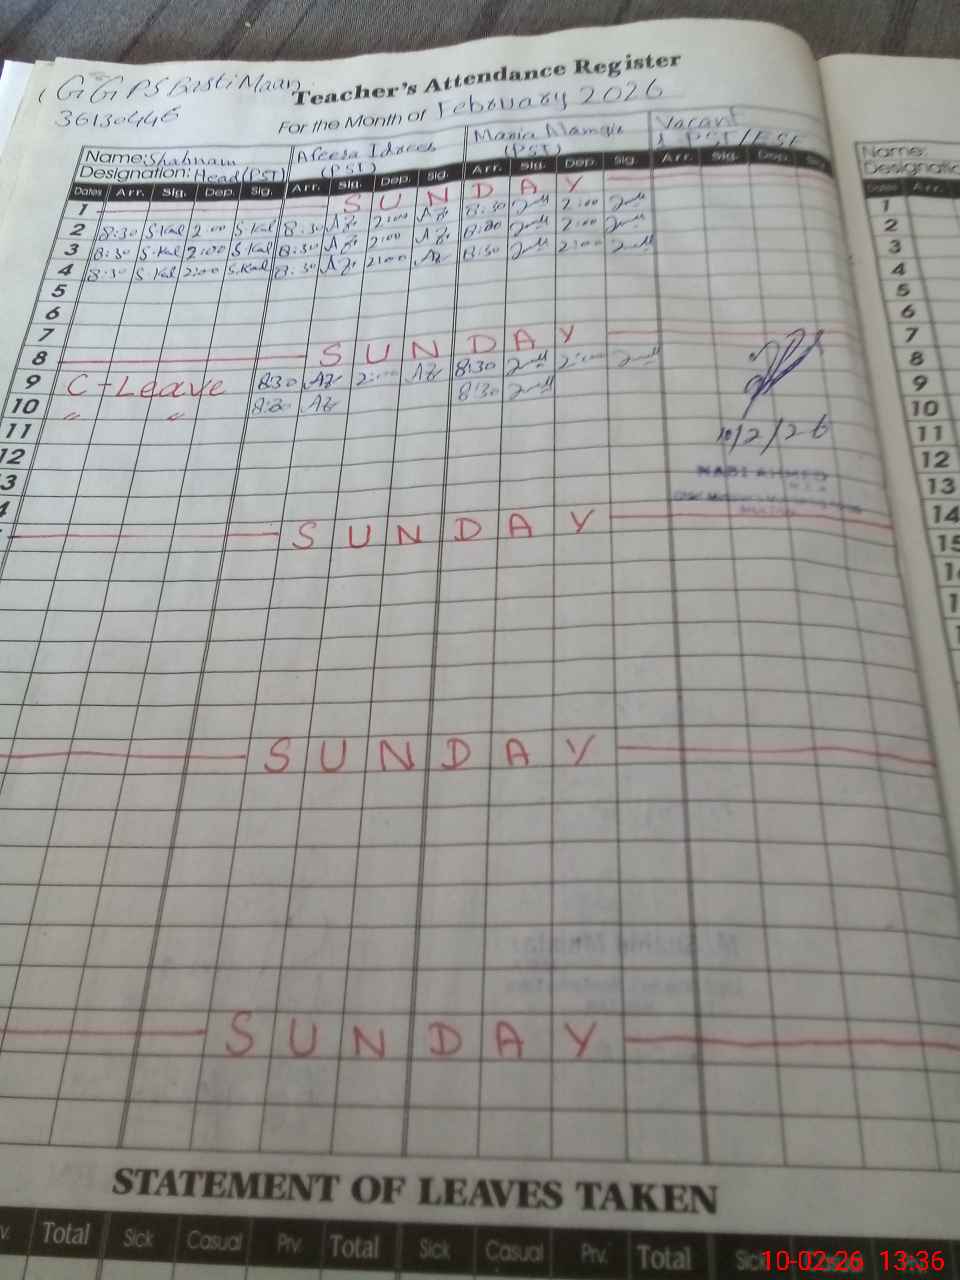 GGPS Basti Maan
36130446
Teacher's Attendance Register
For the Month of February 2026
Name: Shabnam Afeera Idrees Maria Vacant
Designation: Head (PST) (PST) (PST) 1 PST/EST
Dates Arr. Sig. Dep. Sig. Arr. Sig. Dep. Sig. Arr. Sig. Dep. Sig. Arr. Sig. Dep. Sig
1 SUNDAY
2 8:30 S.Kal 2:00 S.Kal 8:30 Az 2:00 Az 8:30 2:00
3 8:30 S.Kal 2:00 S.Kal 8:30 Az 2:00 Az 8:30 2:00
4 8:30 S.Kal 2:00 S.Kal 8:30 Az 2:00 Az 8:30 2:00
5
6
7
8 SUNDAY
9 C-Leave 8:30 Az 2:00 Az 8:30 2:00
10 " " 8:30 Az 8:30
11
12
3
4
SUNDAY
10/2/26
NABI AHMED
SUNDAY
SUNDAY
Name:
Designation
Dates Arr.
1
2
3
4
5
6
7
8
9
10
11
12
13
14
15
STATEMENT OF LEAVES TAKEN
v. Total Sick Casual Prv. Total Sick Casual Prv. Total Sick
10-02-26 13:36